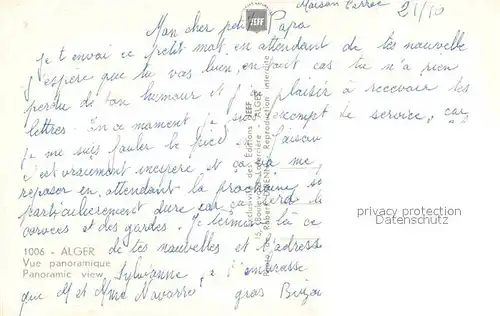 Maison Carrée 21/10
Mon cher petit Papa
Je t envoi ce petit mot en attendant de tes nouvelle
J'espère que tu vas bien, en tout cas tu n'a rien
perdu de ton humour et j'ai plaisir à recevoir tes
lettres. En ce moment je suis exempt de service, car
je me suis fouler le pied
c'est vraiment et ça va me
reposer en attendant la prochaine se
particulierement dure car ça sera
corvées et des gardes. Je termine là ce
de tes nouvelles et l'adresse
Sylvianne, je t'embrasse
que M et Mme Navarro gros Bizou
JEFF
Exclusivité des Editions JEFF
15, Boulevard Laferrière - ALGER
Reproduction interdite
1006 - ALGER
Vue panoramique
Panoramic view
privacy protection
Datenschutz